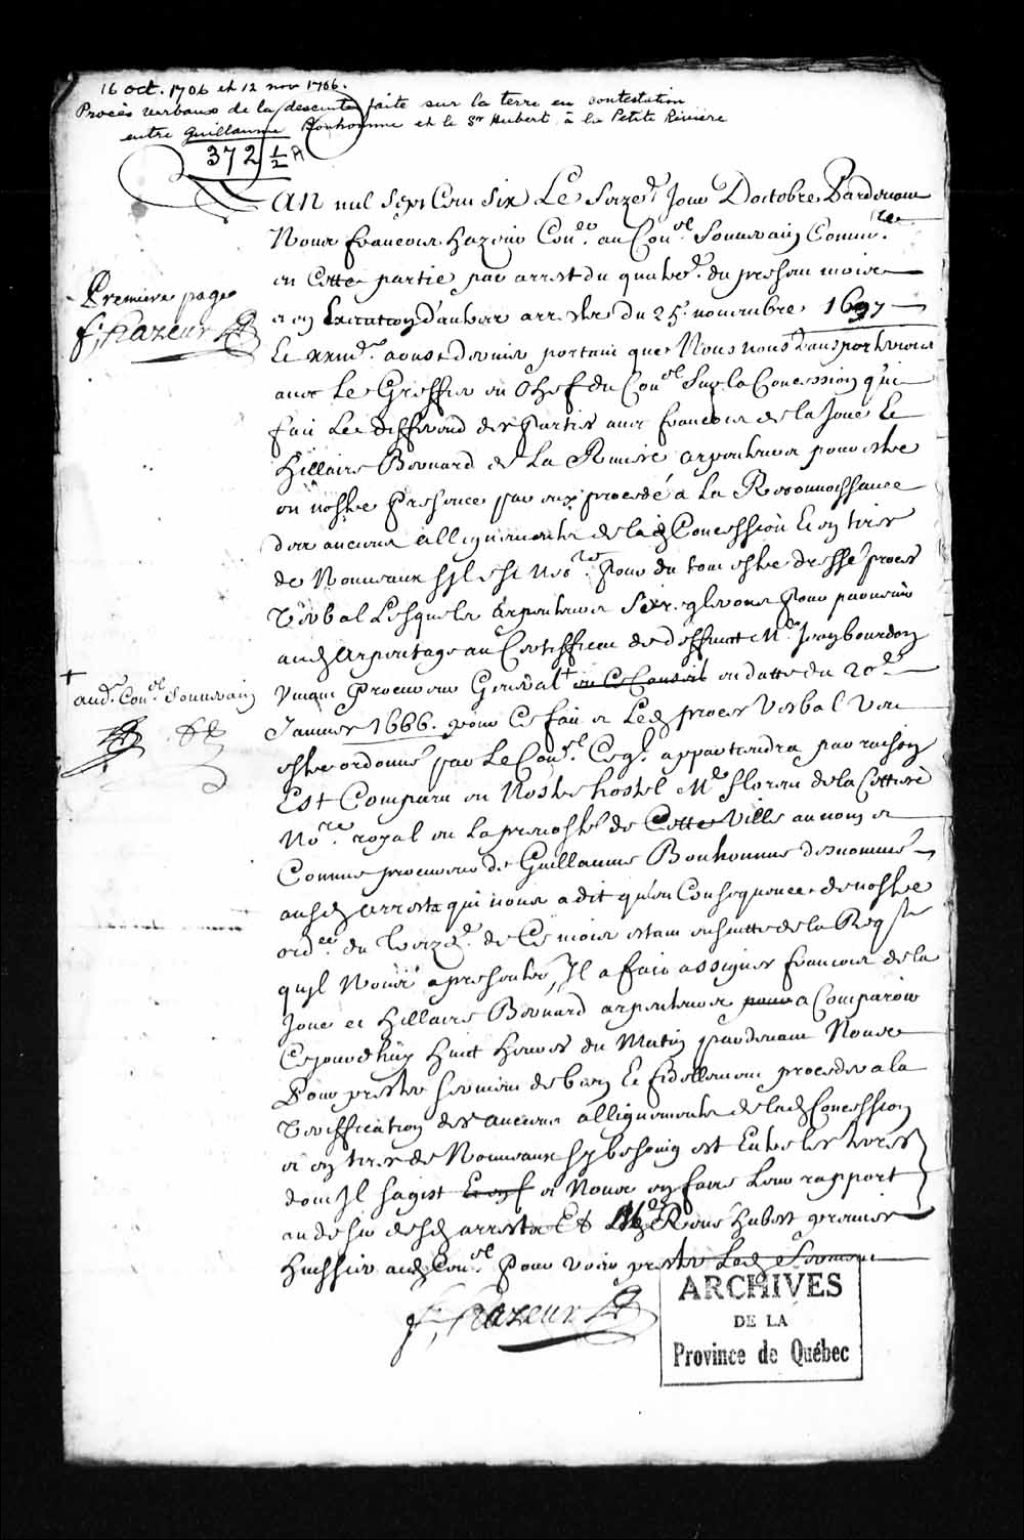 16 oct. 1706 et 12 nov 1706.
Procès verbaux de la descente faite sur la terre en contestation
entre Guillaume Bonhomme et le Sr Hubert à la Petite Rivière
372 1/2 A
LAN mil Sept Cens Six Le Seizee Jour Doctobre Pardevant
Nous francois hazeur Coner au Conel Souverain Commre
en Cette partie par arrest du quatre du present mois
et en Execution d'autres arrests du 25e novembre 1697
Première page
f, hazeur
Et aoust dernier portant que Nous nous transporterions
avec Le Greffier en Chef du Conel Sur la Concession qui
fait Le differend des parties avec francois de la Joue Et
hillaire Bernard de La Riviere arpenteurs pour estre
en nostre presence par eux procedé a La Reconnoissance
des anciens allignements de lad Concession Et en tirer
de Nouveaux Syl est necre pour du tout estre dressé proces
Verbal Lesquels arpenteurs Se regleront pour parvenir
aud arpentage au Certifficat de deffunt Me Jean bourdon
Vivant Procureur General + en Ce Conseil en datte du 20e
+
aud. Conel Souverain
Janvier 1666. pour Ce fait et Led proces Verbal Veu
estre ordonné par Le Conel Ceql appartiendra par raison
Est Comparu en Nostre hostel Me floren de la Cettiere
Nore royal en La prevosté de Cette Ville au nom et
Comme procureur de Guillaume Bonhomme desnommé
ausd arrests qui nous a dit qu'en Consequence de nostre
ordce du treize de Ce mois estant ensuitte de la Reqte
quyl Nous a presentée, Il a fait assigner francois de la
Joue et hillaire Bernard arpenteurs pour a Comparoir
Cejourdhuy huit heures du Matin pardevant Nous
Pour prester serment de bien Et fidellement proceder a la
Veriffication des anciens allignements de lad Concession
et en tirer de Nouveaux Sy besoing est Entre les terres
dont Il sagist Et en f et Nous en faire Leur rapport
au desir desd arrests Et Me Rene hubert premier
huissier aud Conel Pour voir prester Led Serment
f, hazeur
ARCHIVES
DE LA
Province de Québec